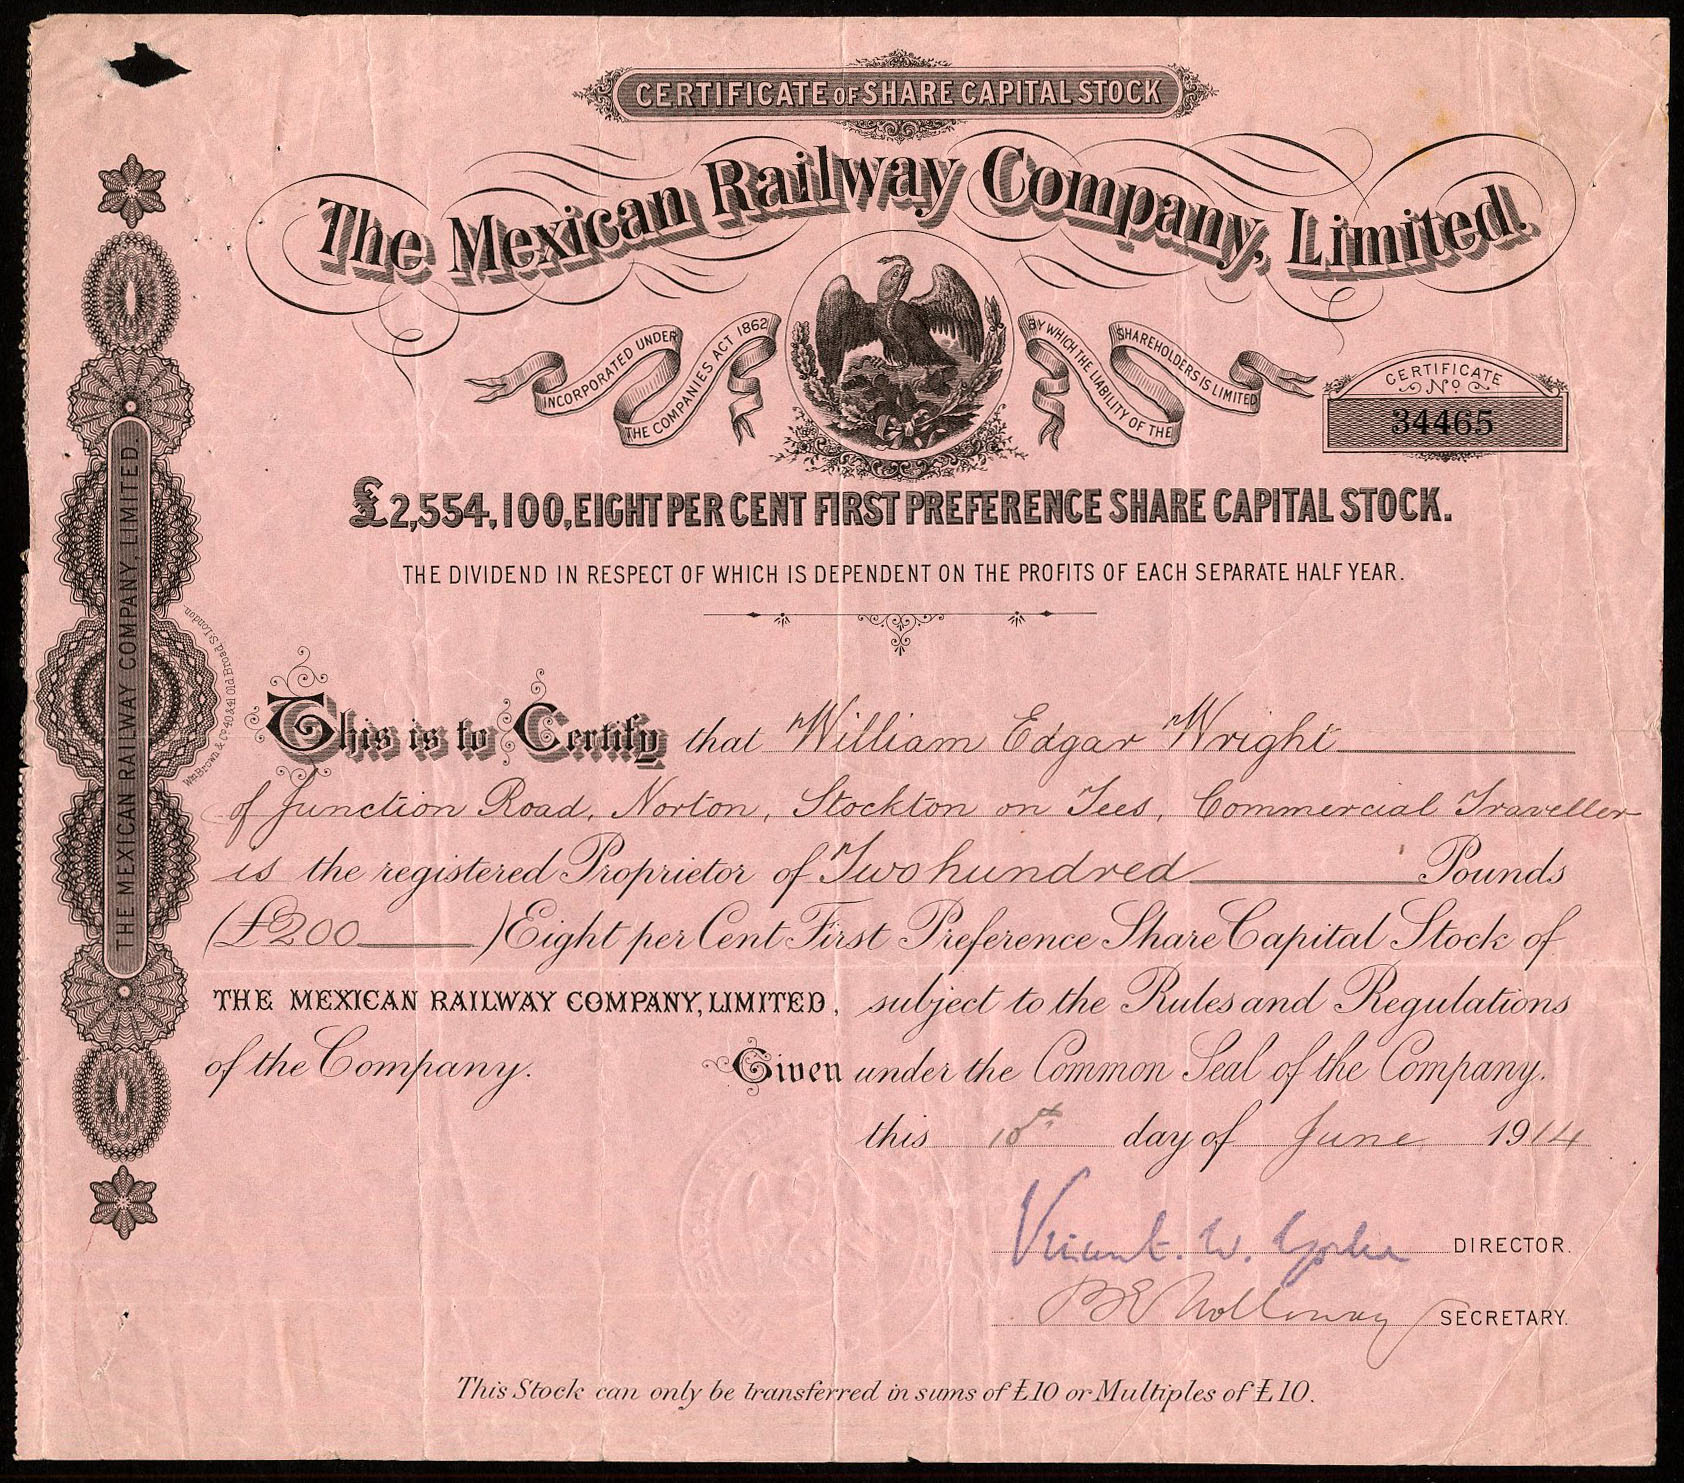 CERTIFICATE OF SHARE CAPITAL STOCK
The Mexican Railway Company, Limited.
INCORPORATED UNDER
THE COMPANIES ACT 1862
BY WHICH THE LIABILITY OF THE
SHAREHOLDERS IS LIMITED
CERTIFICATE
No.
34465
£2,554,100, EIGHT PER CENT FIRST PREFERENCE SHARE CAPITAL STOCK.
THE DIVIDEND IN RESPECT OF WHICH IS DEPENDENT ON THE PROFITS OF EACH SEPARATE HALF YEAR.
THE MEXICAN RAILWAY COMPANY, LIMITED.
Wm Brown & Co 40 & 41 Old Broad St London.
This is to Certify that William Edgar Wright
of Junction Road, Norton, Stockton on Tees, Commercial Traveller
is the registered Proprietor of Two hundred Pounds
(£200 ) Eight per Cent First Preference Share Capital Stock of
THE MEXICAN RAILWAY COMPANY, LIMITED, subject to the Rules and Regulations
of the Company. Given under the Common Seal of the Company.
this 10th day of June 1914
Vincent. W. DIRECTOR.
Holloway SECRETARY.
This Stock can only be transferred in sums of £10 or Multiples of £10.